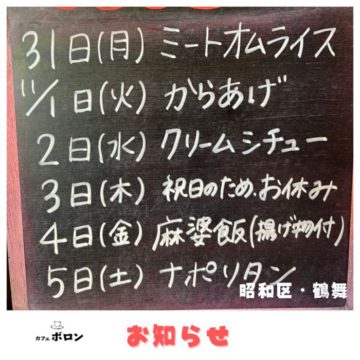 31日(月) ミートオムライス
11/1日(火) からあげ
2日(水) クリームシチュー
3日(木) 祝日のため、お休み
4日(金) 麻婆飯(揚げ物付)
5日(土) ナポリタン
昭和区・鶴舞
カフェ ボロン
お知らせ